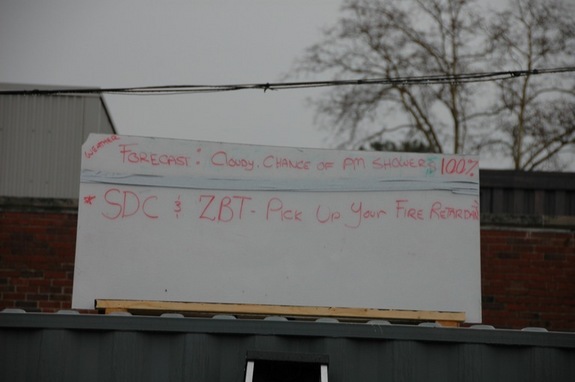 WEATHER FORECAST: CLOUDY. CHANCE OF AM SHOWERS 100%
* SDC & ZBT - PICK UP YOUR FIRE RETARDANT